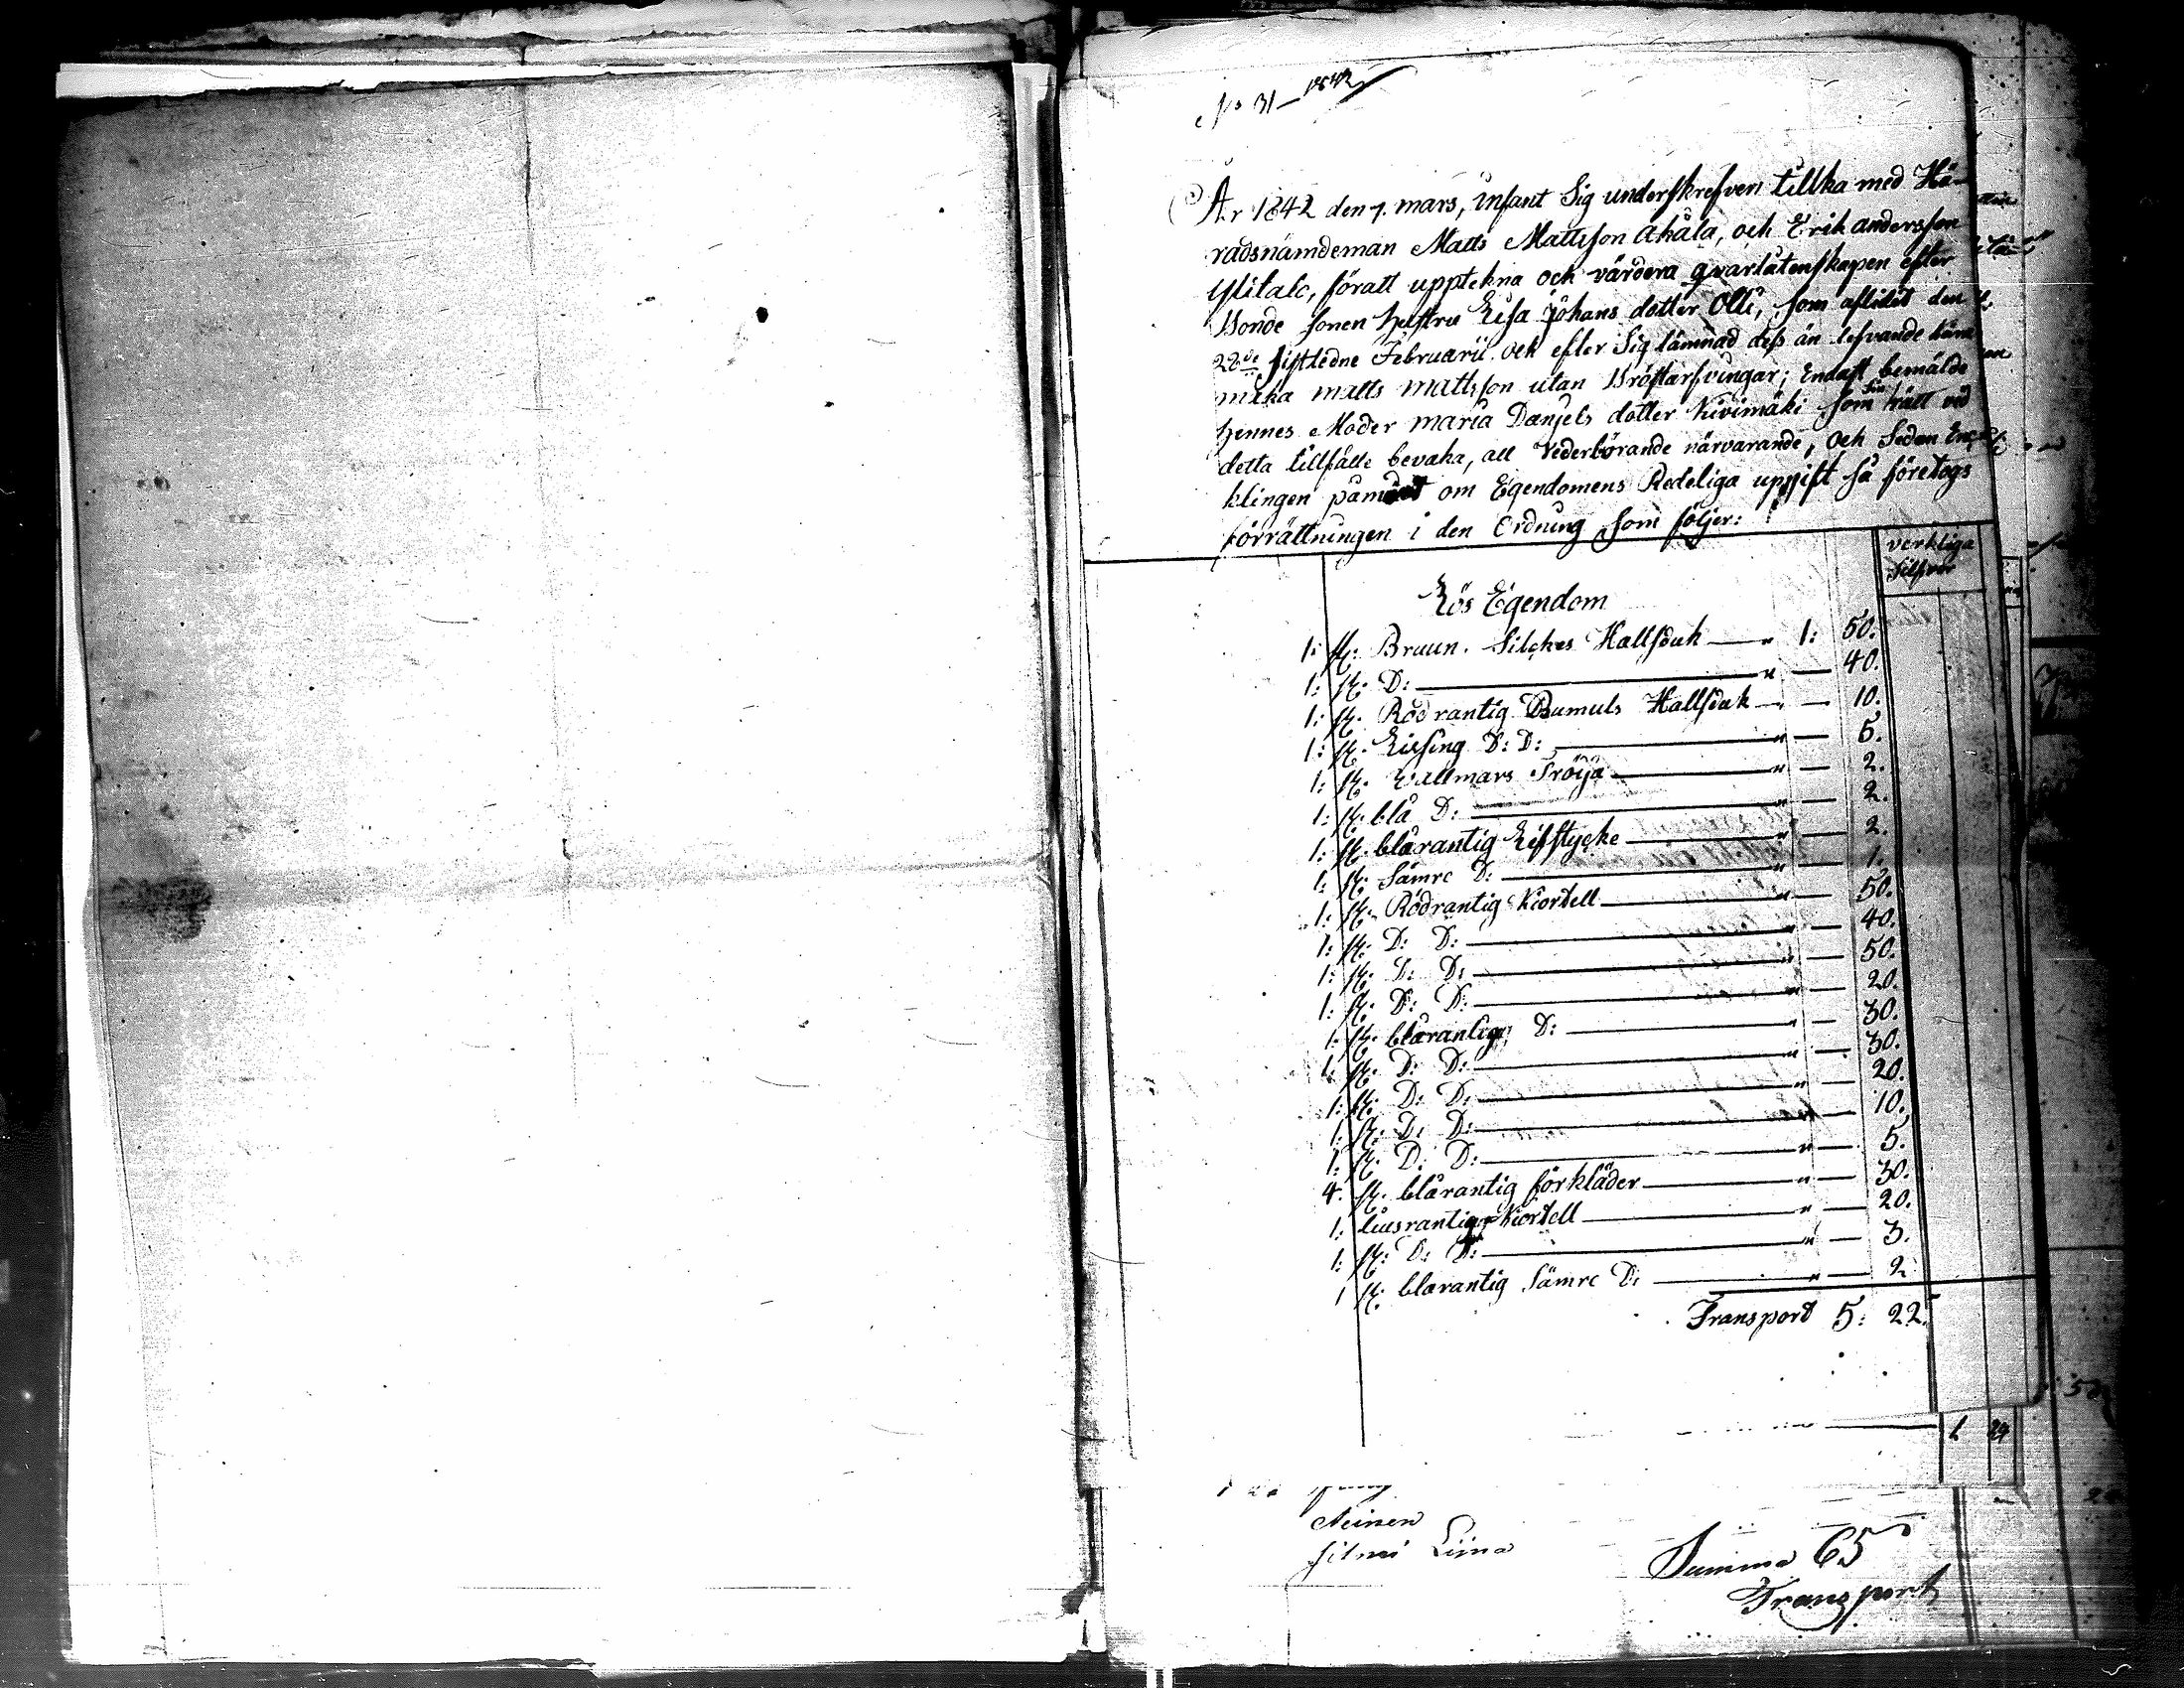 No 31 — 1842
År 1842 den 7. mars, infant Sig underskrefven tillka med Hä-
radsnämdeman Matts Mattsson ahäla, och Erik andersson
Ylitalo, föratt upptekna och värdera qvarlåtenskapen efter
Bonde sonen hustru Lisa johans dotter Olli, som aflidit den
22de sistledne Februarii och efter Sig lämnad dess än lefvande
maka matts mattsson utan Bröstarfvingar; Endast bemälde
hennes Moder maria Danjels dotter Kivimäki som Sin rätt vid
detta tillfälle bevaka, all Vederbörande närvarande, och Sedan Enc-
klingen påmint om Egendomens Redeliga uppift så företogs
förrättningen i den Ordning som följer:
verkliga
Silfver
Lös Egendom
1: st: Bruun. Silckes Hallsduk — " 1: 50.
1: st: D: — " — 40.
1: st: Röd rantig Bumuls Hallsduk — — 10.
1: st: D: D: — " — 5.
1: st: Wallmars Tröija — " — 2.
1: st: blå D: — " — 2.
1: st: blårantig Lifstycke — " — 2.
1: st: Sämre D: — " — 1.
1: st: Rödrantig Kiortell — " — 50.
1: st: D: D: — " — 40.
1: st: D: D: — " — 50.
1: st: D: D: — " — 20.
1: st: blårantig D: — " — 30.
1: st: D: D: — " — 30.
1: st: D: D: — " — 20.
1: st: D: D: — " — 10.
1: st: D: D: — " — 5.
4. st: blårantig förkläder — " — 30.
1: liusrantig Kiortell — " — 20.
1: st: D: D: — " — 3.
1 st: blårantig Sämre D: — " — 2
Transport 5: 22.
1 24
Liina
Summa 65
Transport